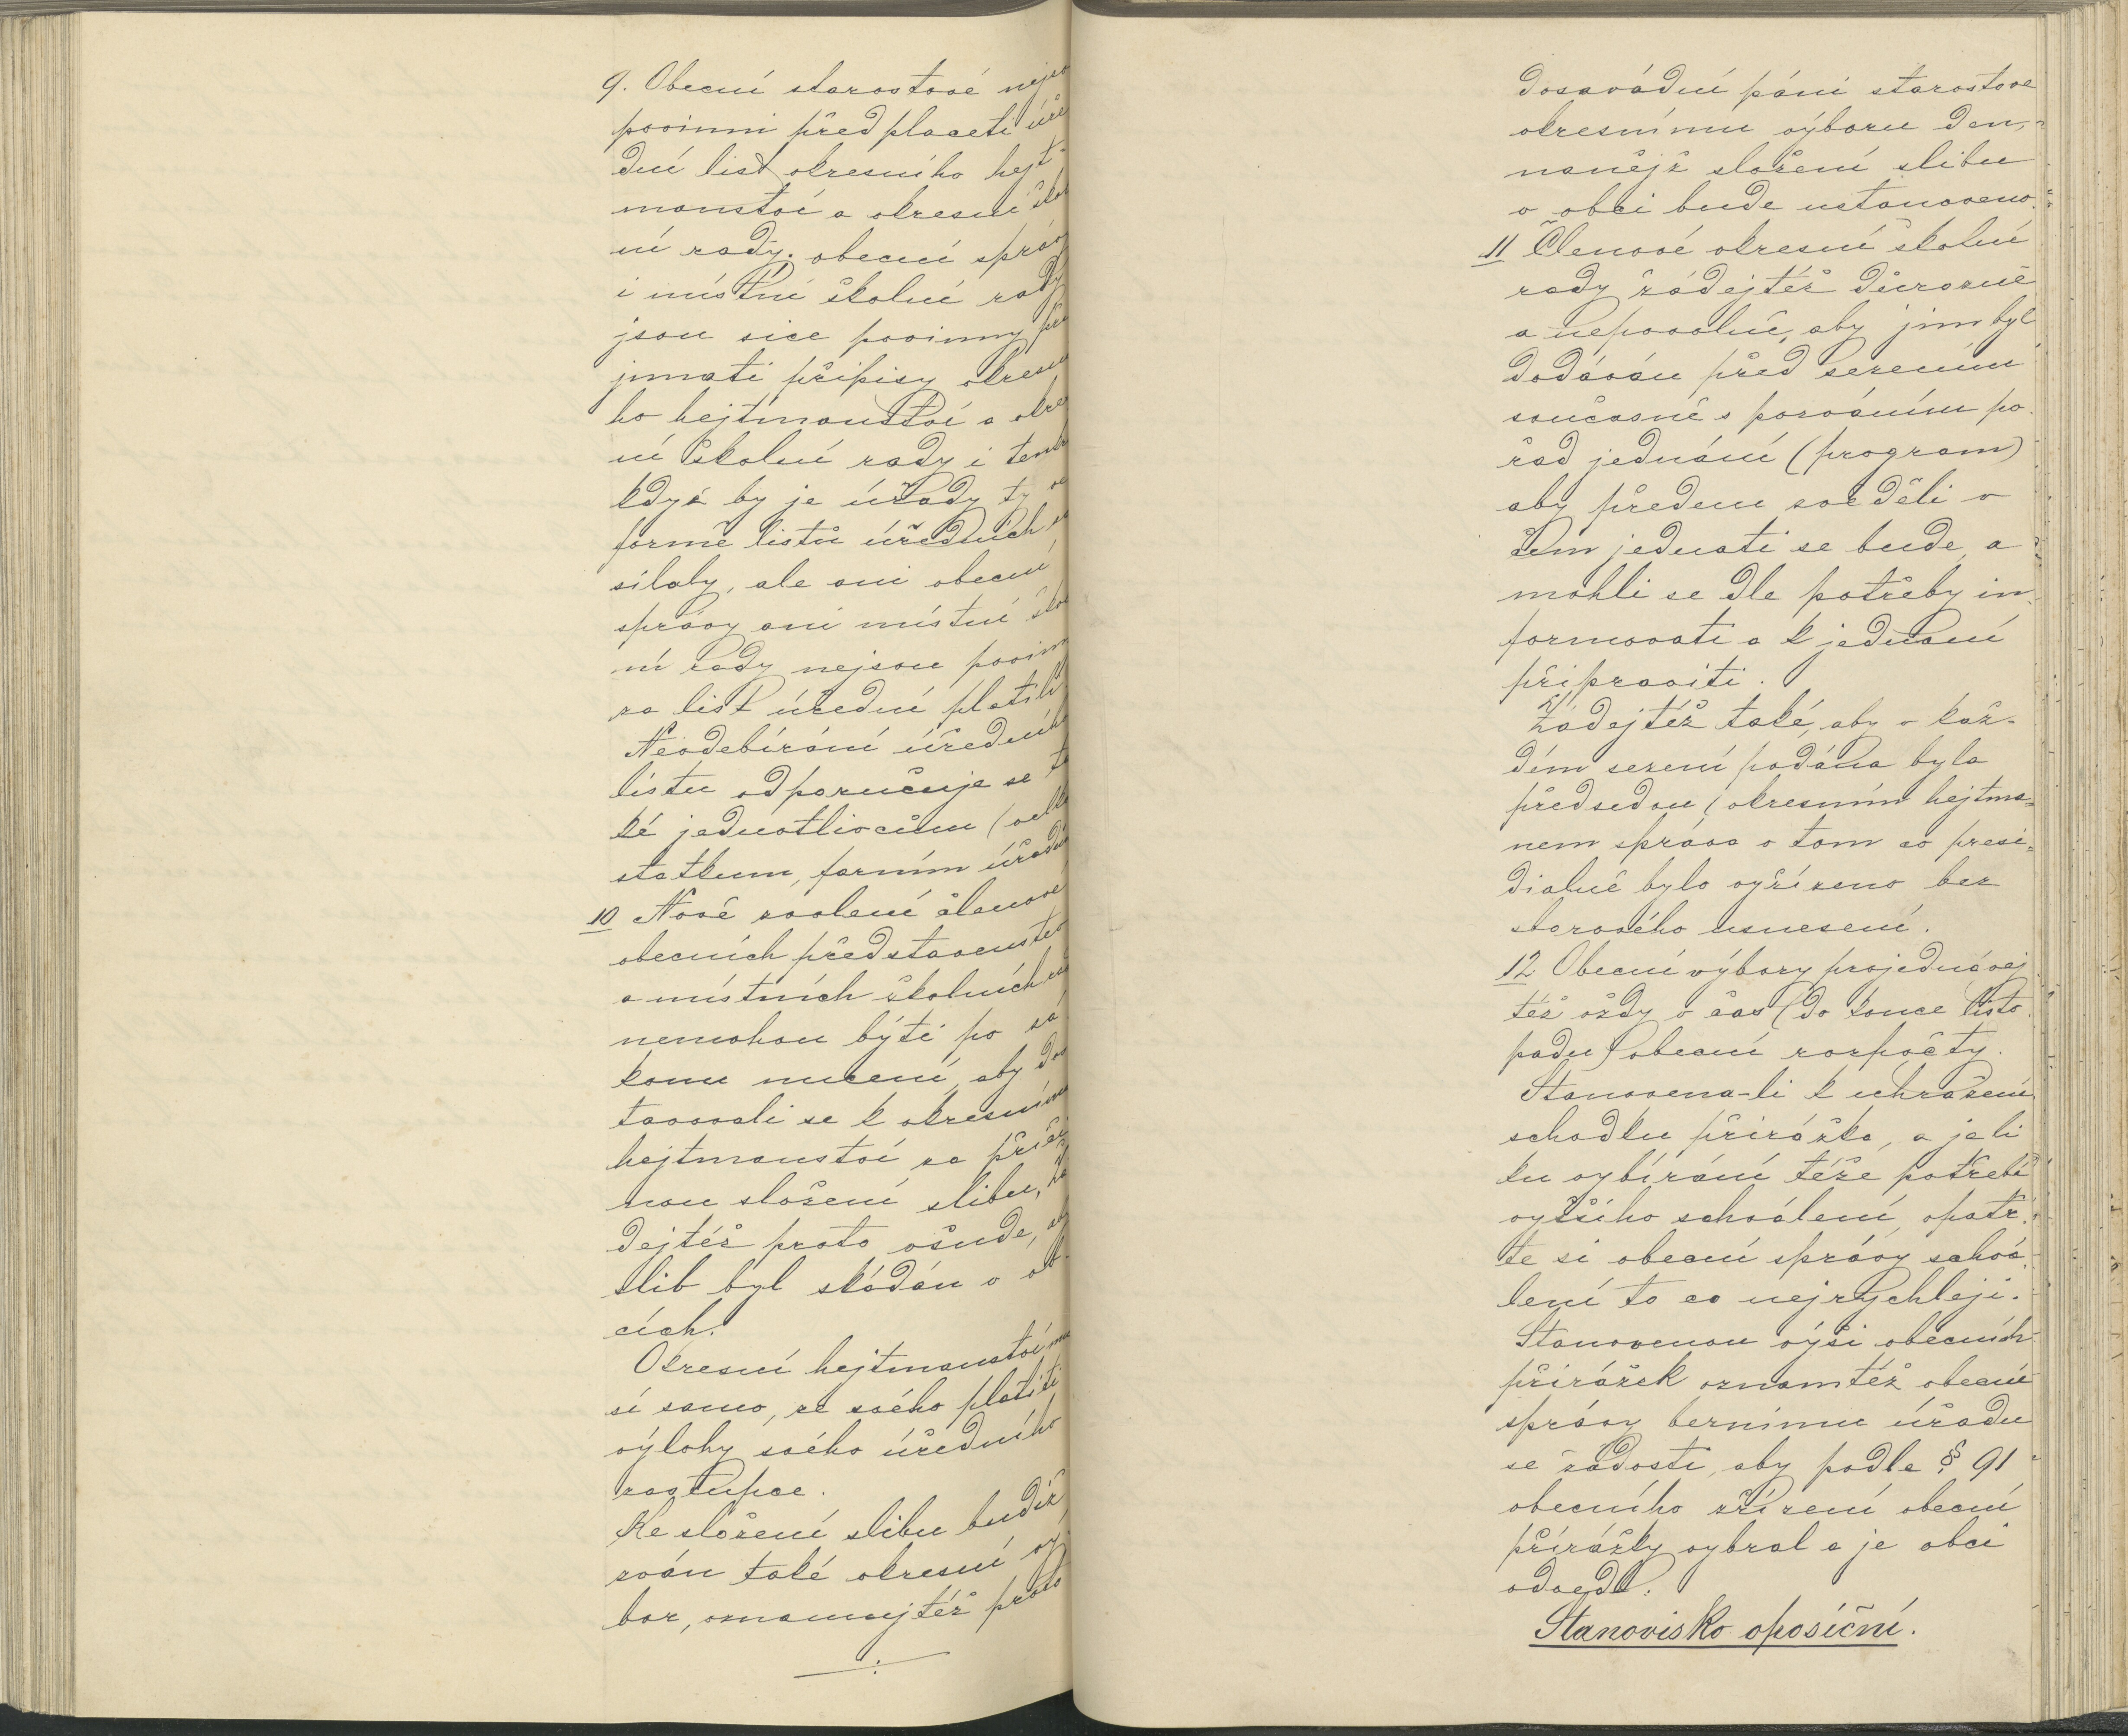 9. Obecní starostové nejso
povinni předplaceti úře
dní list okresního hejt-
manství a okresní škol
ní rady. obecní správ
i místní školní rady
jsou sice povinny při
jmati přípisy okresní
ho hejtmanství a okre
ní školní rady i tenk
když by je úřady ty ve
formě listů úředních
sílaly, ale ani obecní
správy ani místní škol
ní rady nejsou povin
za list úřední platiti
Neodebírání úředníh
listu odporučuje se ta
ké jednotlivcům (vel
statkum, farním úřadů
10 Nově zvolení členove
obecních představenstev
a místních školních ra
nemohou býti po zá
konu nuceni, aby do
tavovali se k okresním
hejtmanství za příči
nou složení slibu, žá
dejtéž proto všude, ab
slib byl skádán v ob
cích.
Okresní hejtmanství mu
sí samo, ze svého platiti
výlohy svého úředního
zástupce.
Ke složení slibu budiž
zván také okresní vý
bor, oznamujtéž proto
dosavádní páni starostove
okresnímu výboru den,
nanějž složení slibu
v obci bude ustanoveno.
11 Členové okresní školní
rady žádejtéž důrazně
a nepovolně, aby jim byl
dodáván před sezením
současně s pozváním po-
řad jednání (program)
aby předem zvěděli o
čem jednati se bude, a
mohli se dle potřeby in
formovati a k jednání
připraviti.
Žádejtéž také, aby v kaž-
dém sezení podána byla
předsedou (okresním hejtma-
nem správa o tom co presi-
dialně bylo vyřízeno bez
sborového usnesení.
12 Obecní výbory projednávej
též vždy v čas (do konce listo
padu) obecní rozpočty.
Stanovena-li k uhražení
schodku přirážka, a jeli
ku vybírání téže potřebí
vyššího schválení, opatř.
te si obecní správy schvá
lení to co nejrychleji.
Stanovenou výši obecních
přirážek oznamtéž obecní
správy bernímu úřadu
se žádostí, aby podle § 91
obecního zřízení obecní
přirážky vybral a je obci
odvedl.
Stanovisko oposiční.